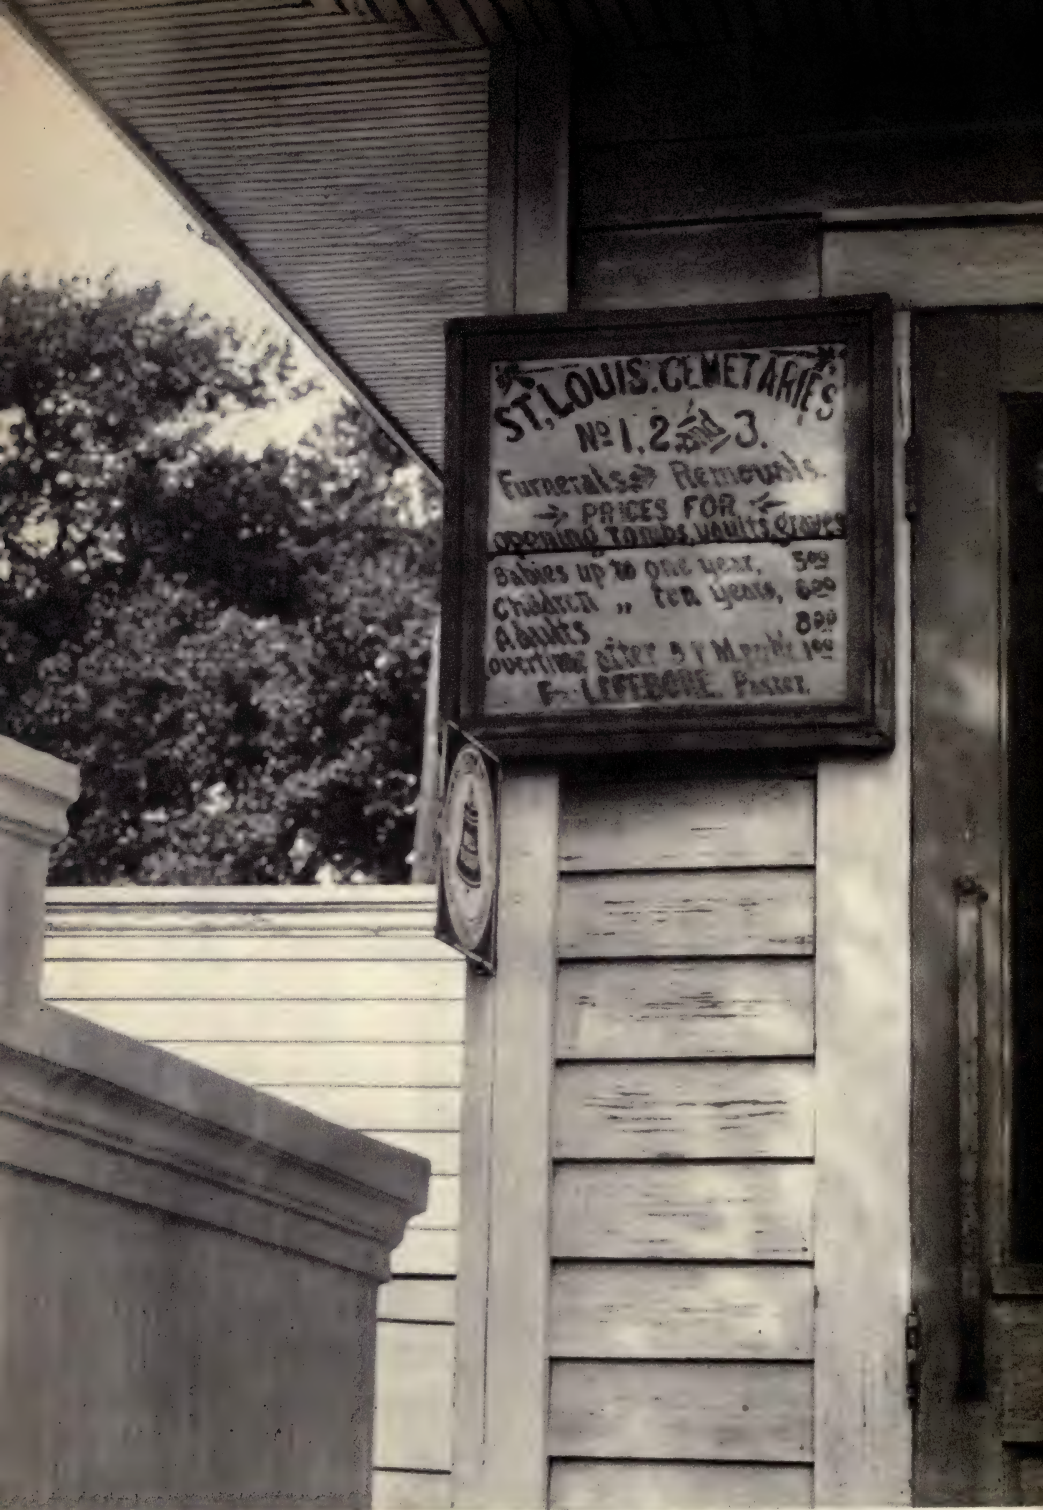 ST. LOUIS. CEMETARIES
Nº 1, 2 and 3.
Funerals Removals.
PRICES FOR
opening Tombs, vaults, graves
Babies up to one year, 5 00
Children „ ten years, 6 00
Adults 8 00
overtime after 5 P.M. 1 00
LEFEBORE. Paster.